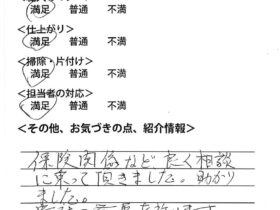 満足 普通 不満
<仕上がり>
満足 普通 不満
<掃除・片付け>
満足 普通 不満
<担当者の対応>
満足 普通 不満
<その他、お気づきの点、紹介情報>
保険関係など良く相談
に乗って頂きました。助かり
ました。